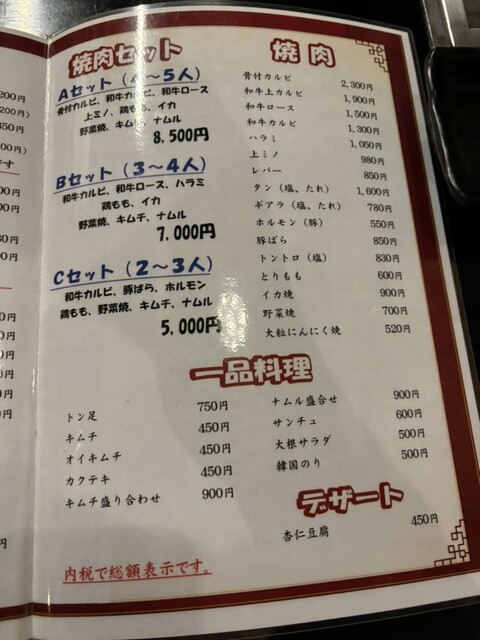 焼肉セット
Aセット(4〜5人)
骨付カルビ、和牛カルビ、和牛ロース
上ミノ、鶏もも、イカ
野菜焼、キムチ、ナムル
8.500円
Bセット(3〜4人)
和牛カルビ、和牛ロース、ハラミ
鶏もも、イカ
野菜焼、キムチ、ナムル
7.000円
Cセット(2〜3人)
和牛カルビ、豚ばら、ホルモン
鶏もも、野菜焼、キムチ、ナムル
5.000円
焼肉
骨付カルビ 2,300円
和牛上カルビ 1,900円
和牛ロース 1,500円
和牛カルビ 1,300円
ハラミ 1,050円
上ミノ 980円
レバー 850円
タン(塩、たれ) 1,600円
ギアラ(塩、たれ) 780円
ホルモン(豚) 550円
豚ばら 850円
トントロ(塩) 830円
とりもも 600円
イカ焼 900円
野菜焼 700円
大粒にんにく焼 520円
一品料理
トン足 750円
キムチ 450円
オイキムチ 450円
カクテキ 450円
キムチ盛り合わせ 900円
ナムル盛合せ 900円
サンチュ 600円
大根サラダ 500円
韓国のり 500円
デザート
杏仁豆腐 450円
内税で総額表示です。